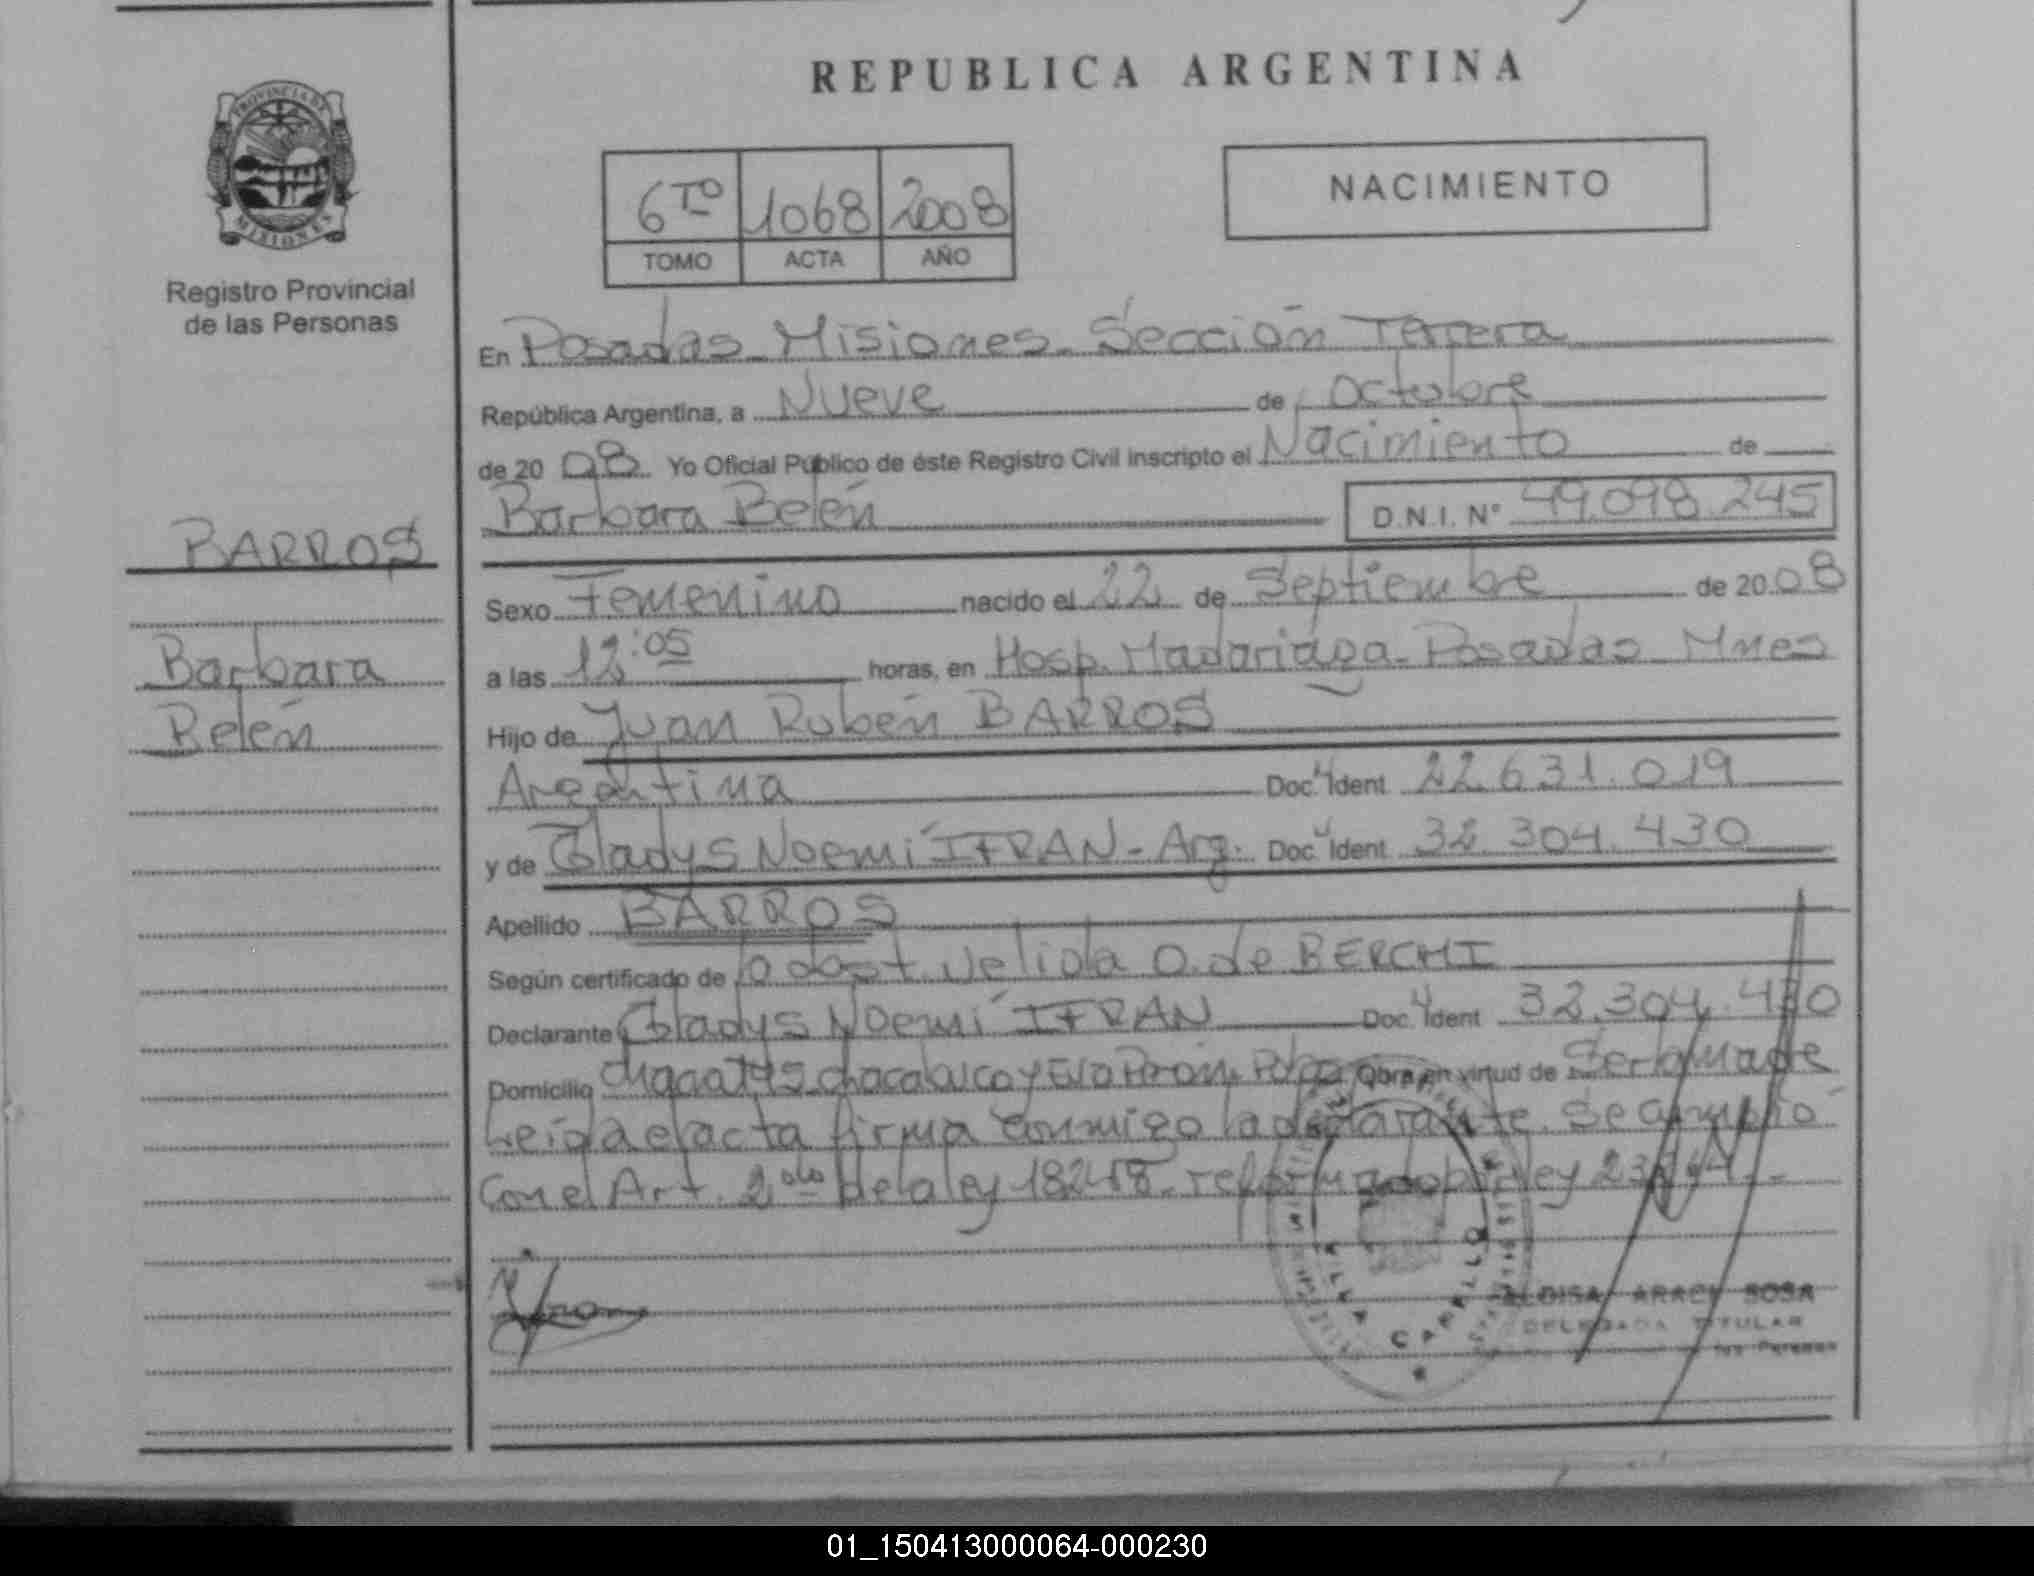 REPUBLICA ARGENTINA
PROVINCIA DE
MISIONES
Registro Provincial
de las Personas
6TO 1068 2008
TOMO ACTA AÑO
NACIMIENTO
En Posadas Misiones Sección Tercera
República Argentina, a Nueve de Octubre
de 2008 Yo Oficial Público de éste Registro Civil inscripto el Nacimiento de
Barbara Belén D.N.I. Nº 49.098.245
BARROS
Barbara
Belén
Sexo Femenino nacido el 22 de Septiembre de 2008
a las 12:05 horas, en Hosp. Madariaga - Posadas Mnes
Hijo de Juan Rubén BARROS
Argentina Doc. Ident 22.631.019
y de Gladys Noemí IFRAN - Arg. Doc. Ident 32.304.430
Apellido BARROS
Según certificado de la obst. Velida O. de BERCHI
Declarante Gladys Noemí IFRAN Doc. Ident 32.304.430
Domicilio chacabuco y Eva Perón Obra en virtud de Ser la madre
Leída el acta firma conmigo la declarante. Se cumplió
Con el Art. 2do de la ley 18248 - ley
ARACI SOSA
DELEGADA TITULAR
las Personas
01_150413000064-000230